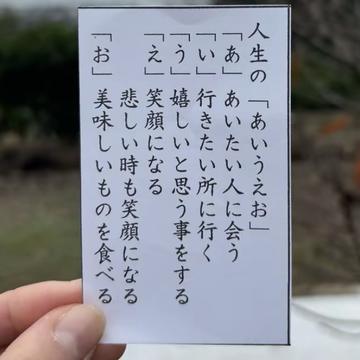 人生の「あいうえお」
「あ」あいたい人に会う
「い」行きたい所に行く
「う」嬉しいと思う事をする
「え」笑顔になる
悲しい時も笑顔になる
「お」美味しいものを食べる